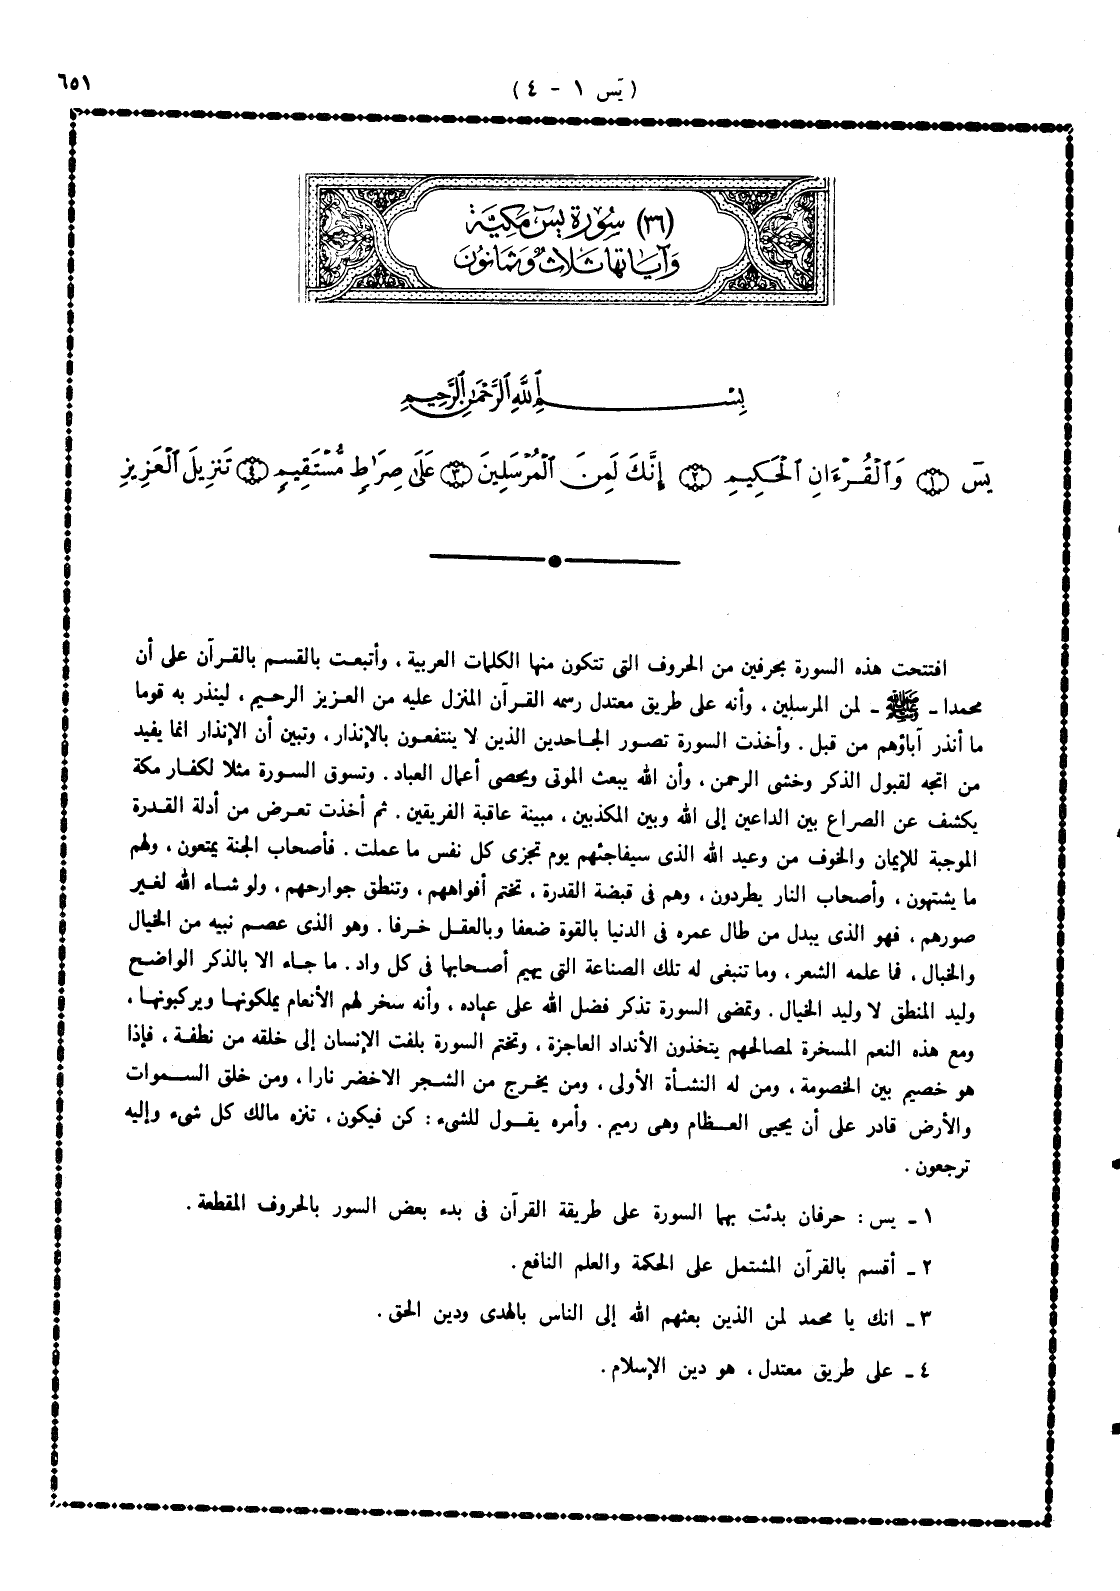 ٦٥١
(يٓس ١ - ٤)
(٣٦) سُورَة يسٓ مَكيَّة
وَآيَاتهَا ثَلَاثٌ وَثَمَانُونَ
بِسْمِ ٱللَّهِ ٱلرَّحْمَٰنِ ٱلرَّحِيمِ
يسٓ ۝١ وَٱلْقُرْءَانِ ٱلْحَكِيمِ ۝٢ إِنَّكَ لَمِنَ ٱلْمُرْسَلِينَ ۝٣ عَلَىٰ صِرَٰطٍ مُّسْتَقِيمٍ ۝٤ تَنزِيلَ ٱلْعَزِيزِ
افتتحت هذه السورة بحرفين من الحروف التى تتكون منها الكلمات العربية ، وأتبعت بالقسم بالقرآن على أن
محمدا ـ ﷺ ـ لمن المرسلين ، وأنه على طريق معتدل رسمه القرآن المنزل عليه من العزيز الرحيم ، لينذر به قوما
ما أنذر آباؤهم من قبل . وأخذت السورة تصور الجاحدين الذين لا ينتفعون بالإنذار ، وتبين أن الإنذار انما يفيد
من اتجه لقبول الذكر وخشى الرحمن ، وأن الله يبعث الموتى ويحصى أعمال العباد . وتسوق السورة مثلا لكفار مكة
يكشف عن الصراع بين الداعين إلى الله وبين المكذبين ، مبينة عاقبة الفريقين . ثم أخذت تعرض من أدلة القدرة
الموجبة للإيمان والخوف من وعيد الله الذى سيفاجئهم يوم تجزى كل نفس ما عملت . فأصحاب الجنة يمتعون ، ولهم
ما يشتهون ، وأصحاب النار يطردون ، وهم فى قبضة القدرة ، تختم أفواههم ، وتنطق جوارحهم ، ولو شاء الله لغير
صورهم ، فهو الذى يبدل من طال عمره فى الدنيا بالقوة ضعفا وبالعقل خرفا . وهو الذى عصم نبيه من الخيال
والخبال ، فما علمه الشعر ، وما تنبغى له تلك الصناعة التى يهيم أصحابها فى كل واد . ما جاء الا بالذكر الواضح
وليد المنطق لا وليد الخيال . وتمضى السورة تذكر فضل الله على عباده ، وأنه سخر لهم الأنعام يملكونها ويركبونها ،
ومع هذه النعم المسخرة لمصالحهم يتخذون الأنداد العاجزة ، وتختم السورة بلفت الإنسان إلى خلقه من نطفة ، فإذا
هو خصيم بين الخصومة ، ومن له النشأة الأولى ، ومن يخرج من الشجر الاخضر نارا ، ومن خلق السموات
والأرض قادر على أن يحيى العظام وهى رميم . وأمره يقول للشىء : كن فيكون ، تنزه مالك كل شىء وإليه
ترجعون .
١ ـ يس : حرفان بدئت بهما السورة على طريقة القرآن فى بدء بعض السور بالحروف المقطعة .
٢ ـ أقسم بالقرآن المشتمل على الحكمة والعلم النافع .
٣ ـ انك يا محمد لمن الذين بعثهم الله إلى الناس بالهدى ودين الحق .
٤ ـ على طريق معتدل ، هو دين الإسلام .